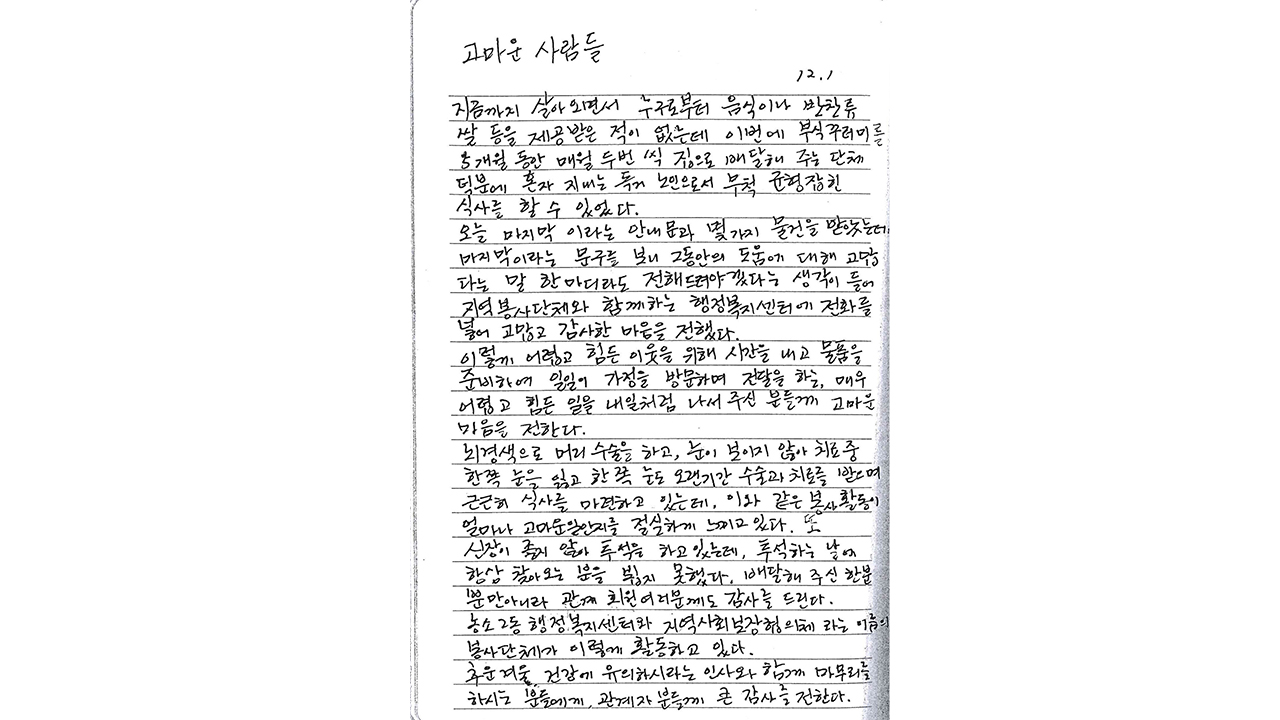 고마운 사람들
12.1
지금까지 살아오면서 누구로부터 음식이나 반찬류
쌀 등을 제공받은 적이 없는데 이번에 부식꾸러미를
5개월 동안 매월 두번 씩 집으로 배달해 주는 단체
덕분에 혼자 지내는 독거 노인으로서 무척 균형잡힌
식사를 할 수 있었다.
오늘 마지막 이라는 안내문과 몇가지 물건을 받았는데,
마지막이라는 문구를 보니 그동안의 도움에 대해 고맙
다는 말 한마디라도 전해드려야겠다는 생각이 들어
지역봉사단체와 함께하는 행정복지센터에 전화를
넣어 고맙고 감사한 마음을 전했다.
이렇게 어렵고 힘든 이웃을 위해 시간을 내고 물품을
준비하여 일일이 가정을 방문하며 전달을 하는, 매우
어렵고 힘든 일을 내일처럼 나서 주신 분들께 고마운
마음을 전한다.
뇌경색으로 머리 수술을 하고, 눈이 보이지 않아 치료 중
한쪽 눈을 잃고 한 쪽 눈도 오랜기간 수술과 치료를 받으며
근근히 식사를 마련하고 있는데, 이와 같은 봉사활동이
얼마나 고마운일인지를 절실하게 느끼고 있다. 또
신장이 좋지 않아 투석을 하고있는데, 투석하는 날에
항상 찾아오는 분을 뵙지 못했다. 배달해 주신 한분
뿐만아니라 관계 회원여러분께도 감사를 드린다.
농소2동 행정복지센터와 지역사회보장협의체 라는 이름의
봉사단체가 이렇게 활동하고 있다.
추운겨울, 건강에 유의하시라는 인사와 함께 마무리를
하시는 분들에게, 관계자 분들께 큰 감사를 전한다.